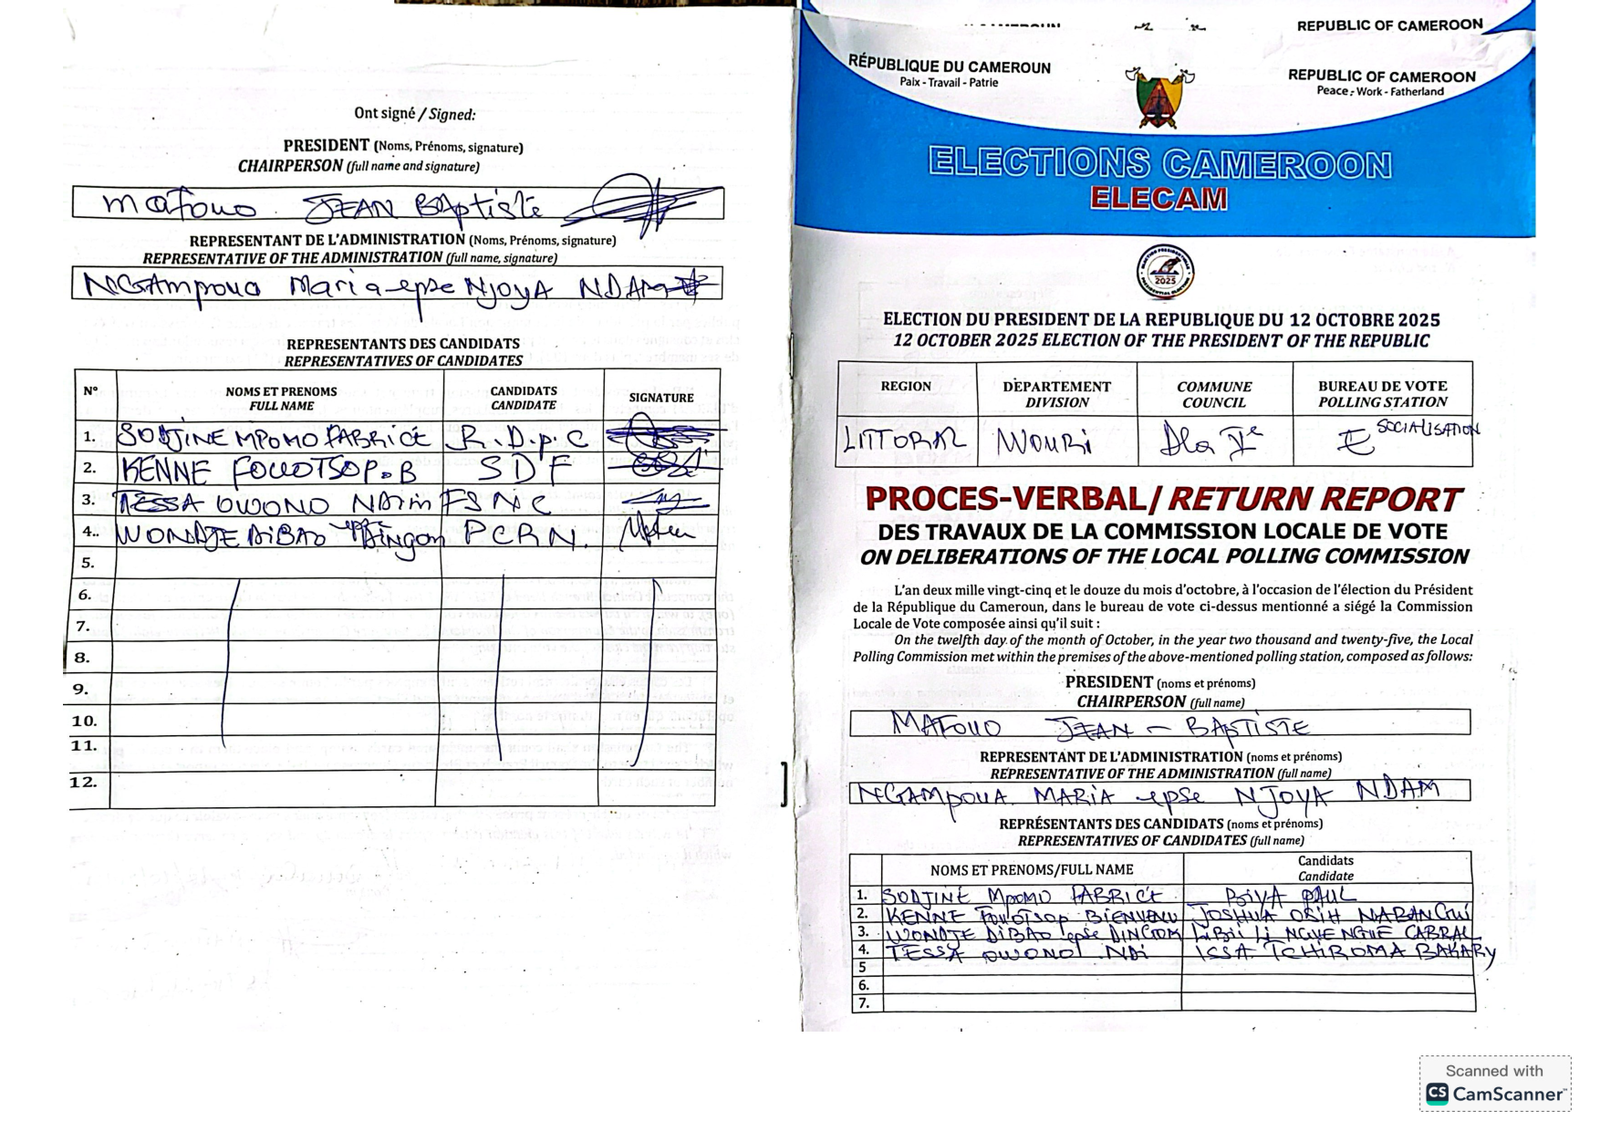 Ont signé / Signed:
PRESIDENT (Noms, Prénoms, signature)
CHAIRPERSON (full name and signature)
Mafouo JEAN BAptiste
REPRESENTANT DE L'ADMINISTRATION (Noms, Prénoms, signature)
REPRESENTATIVE OF THE ADMINISTRATION (full name, signature)
NGAmpoua Maria epse NJoyA NDAM
REPRESENTANTS DES CANDIDATS
REPRESENTATIVES OF CANDIDATES
N° NOMS ET PRENOMS CANDIDATS SIGNATURE
FULL NAME CANDIDATE
1. SODJINE MPOMO FABRICE R.D.p.C
2. KENNE FOUOTSOP.B SDF
3. TESSA OWONO NDIM FSNC
4.. WONDJE DIBAO epse PCRN.
5.
6.
7.
8.
9.
10.
11.
12.
REPUBLIC OF CAMEROON
RÉPUBLIQUE DU CAMEROUN
Paix - Travail - Patrie
REPUBLIC OF CAMEROON
Peace - Work - Fatherland
ELECTIONS CAMEROON
ELECAM
2025
ELECTION DU PRESIDENT DE LA REPUBLIQUE DU 12 OCTOBRE 2025
12 OCTOBER 2025 ELECTION OF THE PRESIDENT OF THE REPUBLIC
REGION DÉPARTEMENT COMMUNE BUREAU DE VOTE
DIVISION COUNCIL POLLING STATION
LITTORAL WOURI Dla Ie E SOCIALISATION
PROCES-VERBAL/ RETURN REPORT
DES TRAVAUX DE LA COMMISSION LOCALE DE VOTE
ON DELIBERATIONS OF THE LOCAL POLLING COMMISSION
L'an deux mille vingt-cinq et le douze du mois d'octobre, à l'occasion de l'élection du Président
de la République du Cameroun, dans le bureau de vote ci-dessus mentionné a siégé la Commission
Locale de Vote composée ainsi qu'il suit :
On the twelfth day of the month of October, in the year two thousand and twenty-five, the Local
Polling Commission met within the premises of the above-mentioned polling station, composed as follows:
PRESIDENT (noms et prénoms)
CHAIRPERSON (full name)
MAFOUO JEAN - BAPTISTE
REPRESENTANT DE L'ADMINISTRATION (noms et prénoms)
REPRESENTATIVE OF THE ADMINISTRATION (full name)
NGAMPOUA MARIA epse NJOYA NDAM
REPRÉSENTANTS DES CANDIDATS (noms et prénoms)
REPRESENTATIVES OF CANDIDATES (full name)
NOMS ET PRENOMS/FULL NAME Candidats
Candidate
1. SODJINE MPOMO FABRICE BIYA PAUL
2. KENNE FOUOTSOP BIENVENU JOSHUA OSIH NABANGWI
3. WONDJE DIBAO epse DINGOM LIBII LI NGUE NGUE CABRAL
4. TESSA OWONO NDI ISSA TCHIROMA BAKARY
5
6.
7.
Scanned with
CS CamScanner